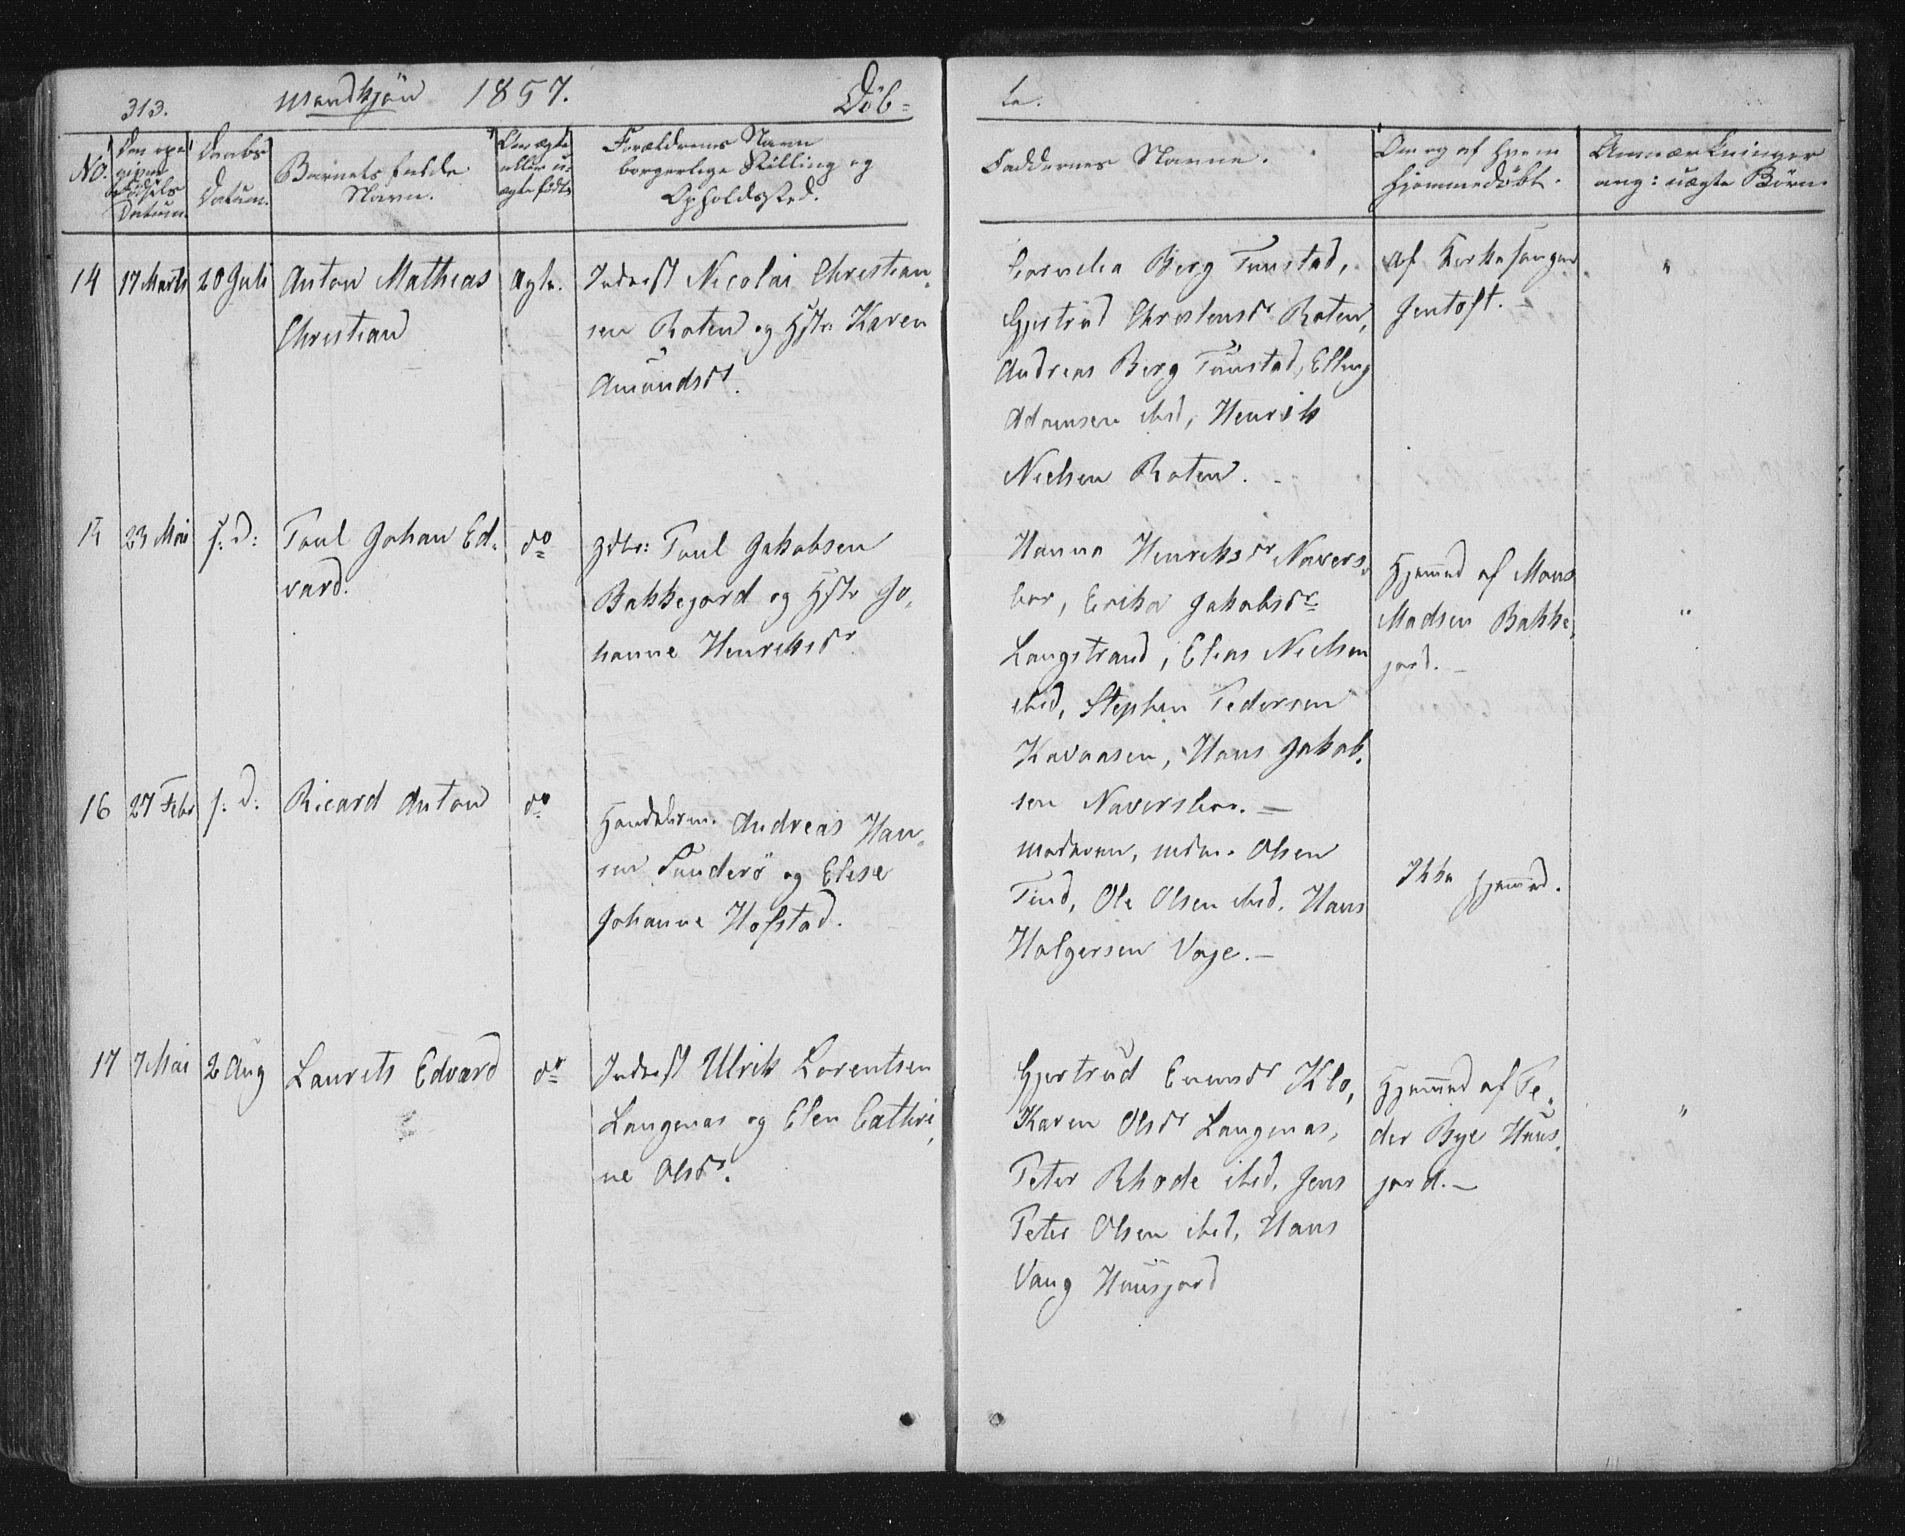 313. Mandkjön 1857. Döb-
te.
No.
Den opgivne Födsels Datum.
Daabs Datum.
Barnets fulde Navn.
Om ægte eller uægte födt.
Forældrenes Navn borgerlige Stilling og Opholdssted.
Faddernes Navne.
Om og af hvem hjemmedöbt.
Anmærkninger ang: uægte Börn.
14 17 Marts 20 Juli Anton Mathias ægte. Inderst Nicolai Christian-
Christian
sen Roten og Hstr Karen
Amundsdr.
Cornelia Berg Tunstad,
Gjertrud Christensdr Roten,
Andreas Berg Tunstad, Elling
Adamsen ibid, Henrik
Nielsen Roten. -
af Kirkesanger
Jentoft. -
"
15 23 Mai s: D: Poul Johan Ed-
vard.
do
Poul Jakobsen
Bakkejord og Hstr Jo-
hanne Henriksdr.
Hanna Henriksdr Navers-
Erika Jakobsdr
Langstrand, Elias Nielsen
ibid, Stephen Pedersen
Kavaasen, Hans Jakob-
sen
Hjemmed af Mons
Madsen Bakke-
jord. -
"
16 27 Febr s: D: Ricard Anton do
Andreas Han-
sen Sunderö og Elise
Johanne Hofstad.
Moderen, Mdm. Olsen
Tind, Ole Olsen ibid, Hans
Holgersen Vaje. -
Ikke hjemmed.
17 7 Mai 2 Aug Laurits Edvard do
Inderst Ulrik Lorentsen
Langenæs og Elen Cathri-
ne Olsdr.
Gjertrud Evensdr Klo,
Karen Olsdr Langenæs,
Peter Rhode ibid, Jens
Peter Olsen ibid, Hans
Vang Huusjord
Hjemmed af Pe-
der Bye Huus-
jord. -
"